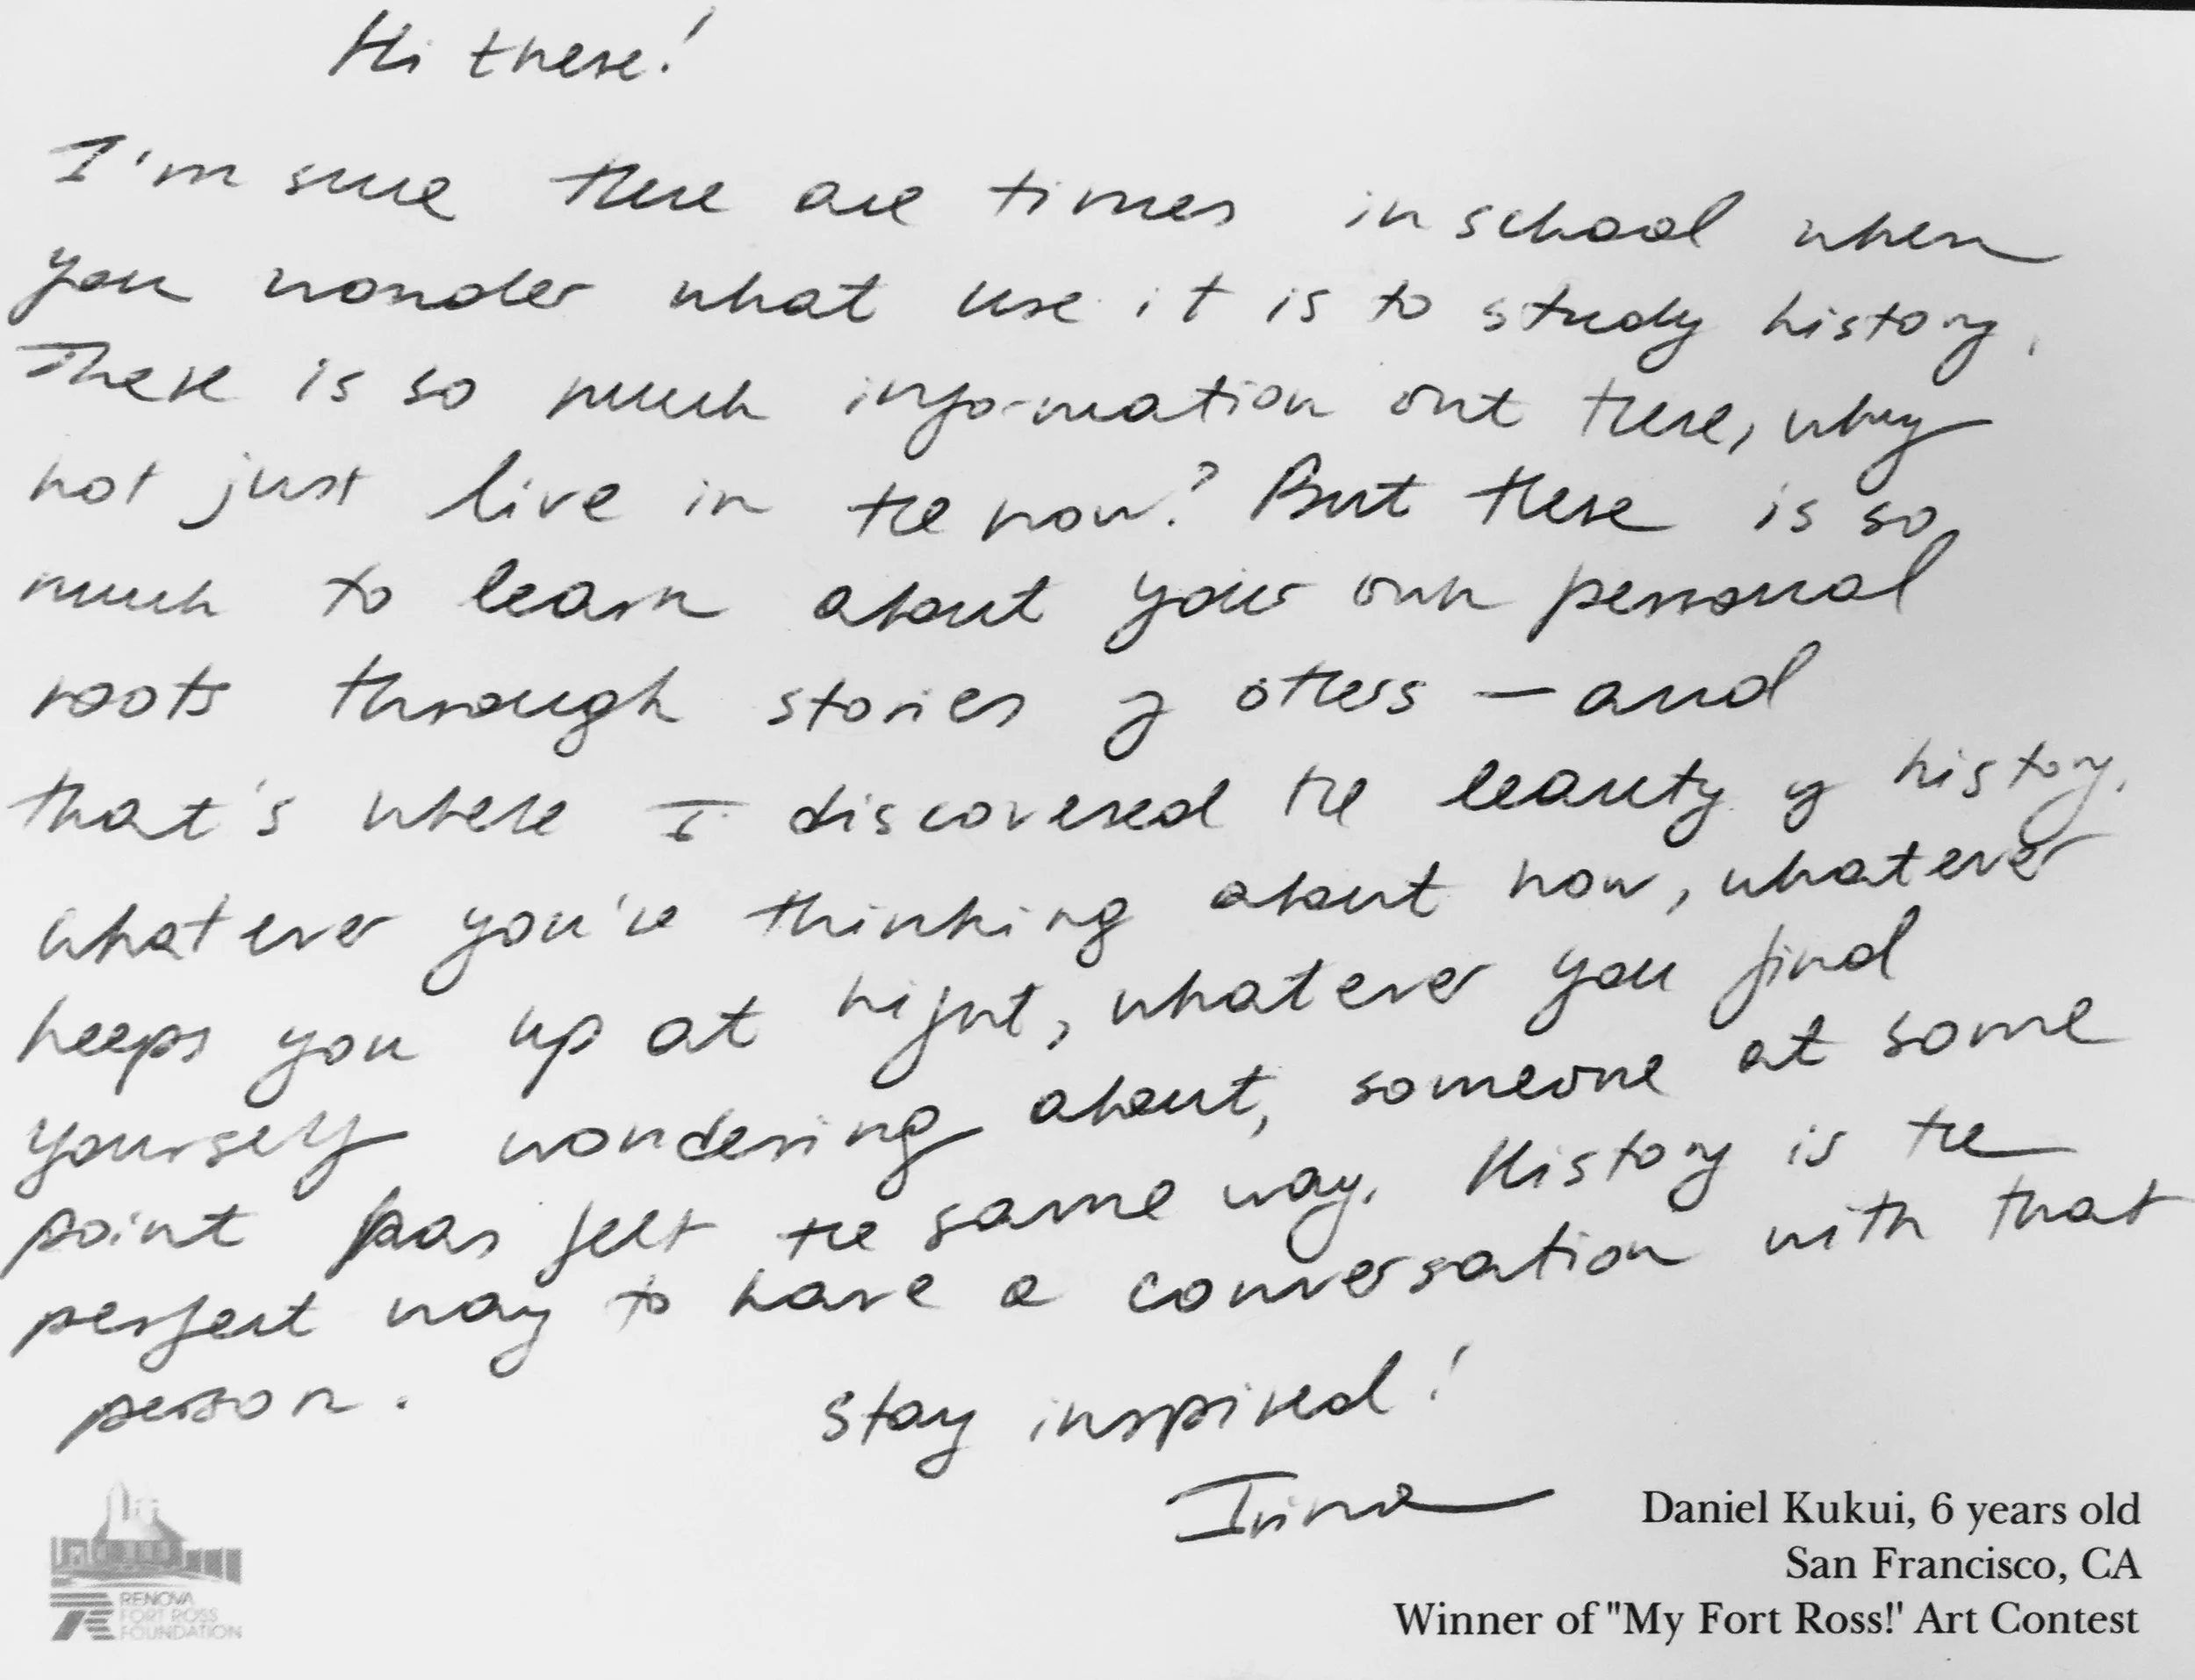 Hi there!
I'm sure there are times in school when
you wonder what use it is to study history.
There is so much information out there, why
not just live in the now? But there is so
much to learn about your own personal
roots through stories of others — and
that's where I discovered the beauty of history.
Whatever you're thinking about now, whatever
keeps you up at night, whatever you find
yourself wondering about, someone at some
point has felt the same way. History is the
perfect way to have a conversation with that
person.
Stay inspired!
Irina
Daniel Kukui, 6 years old
San Francisco, CA
Winner of "My Fort Ross!' Art Contest
RENOVA
FORT ROSS
FOUNDATION